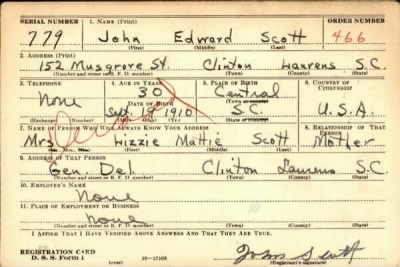 SERIAL NUMBER 1. NAME (Print) ORDER NUMBER
779 John Edward Scott 466
(First) (Middle) (Last)
2. ADDRESS (Print)
152 Musgrove St. Clinton Laurens S.C.
(Number and street or R. F. D. number) (Town) (County) (State)
3. TELEPHONE 4. AGE IN YEARS 5. PLACE OF BIRTH 6. COUNTRY OF CITIZENSHIP
None 30 Central
DATE OF BIRTH (Town or county)
Sept 19 1910 S.C. U.S.A.
(Exchange) (Number) (Mo.) (Day) (Yr.) (State or country)
7. NAME OF PERSON WHO WILL ALWAYS KNOW YOUR ADDRESS 8. RELATIONSHIP OF THAT PERSON
Mrs Lizzie Mattie Scott Mother
(Mr., Mrs., Miss) (First) (Middle) (Last)
9. ADDRESS OF THAT PERSON
Gen Del Clinton Laurens S.C.
(Number and street or R. F. D. number) (Town) (County) (State)
10. EMPLOYER'S NAME
None
11. PLACE OF EMPLOYMENT OR BUSINESS
None
(Number and street or R. F. D. number) (Town) (County) (State)
I AFFIRM THAT I HAVE VERIFIED ABOVE ANSWERS AND THAT THEY ARE TRUE.
REGISTRATION CARD
D. S. S. Form 1 16-17105 John Scott
(Registrant's signature)